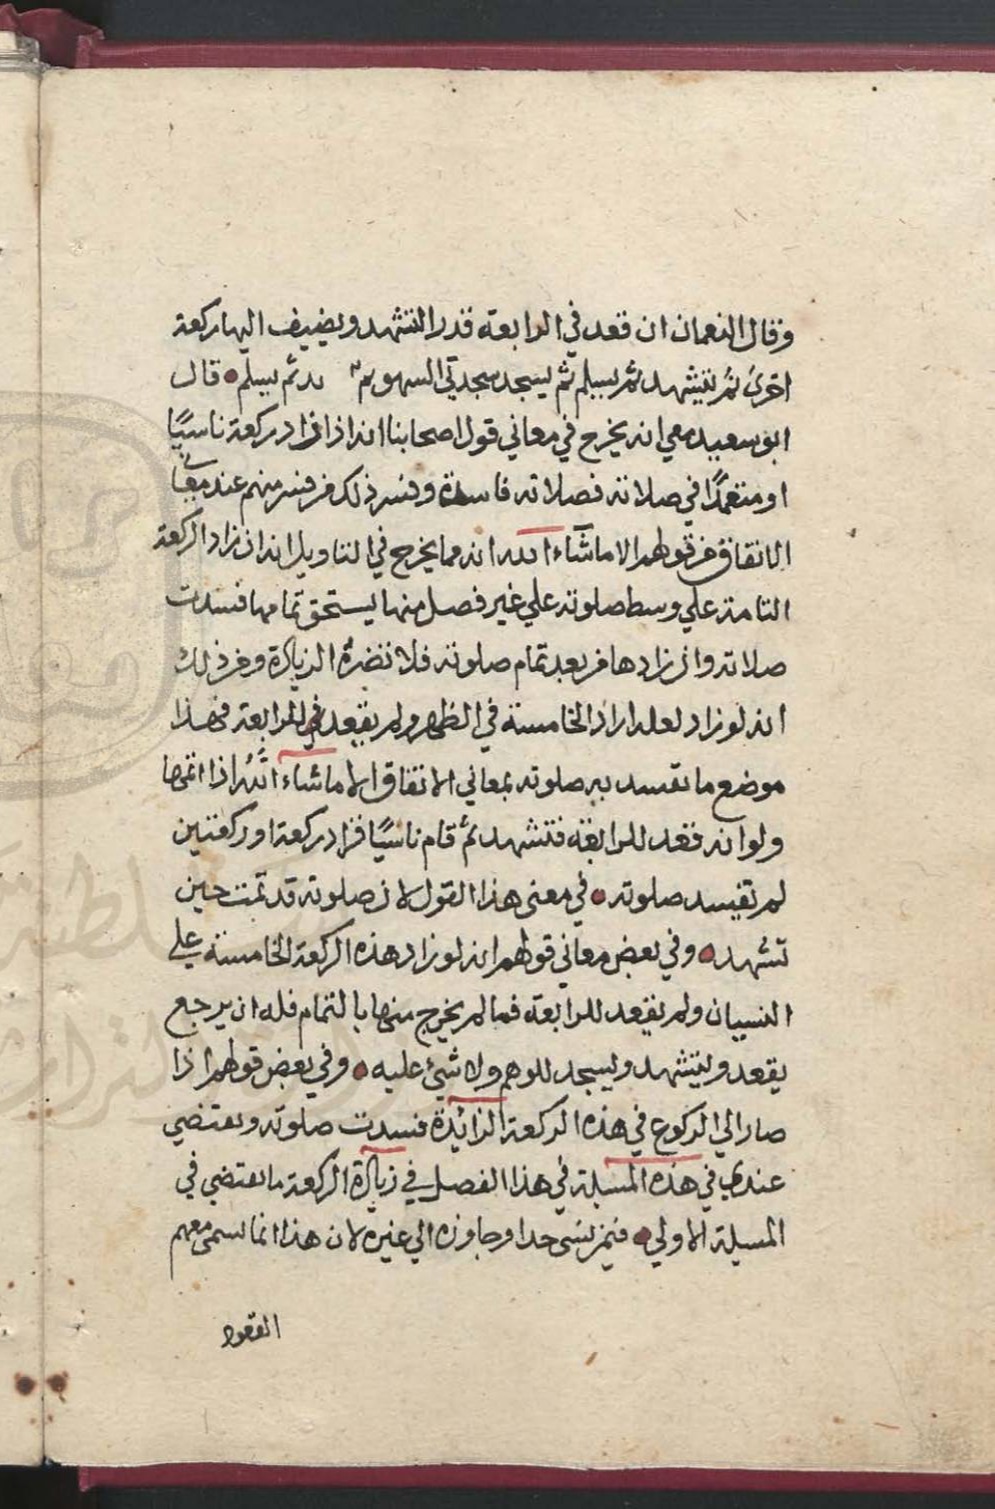 وقال النعمان ان قعد في الرابعة قدر التشهد ويضيف اليها ركعة
اخرى ثم يتشهد ثم يسلم ثم يسجد سجدتي السهو ثم يسلم قال
ابو سعيد معي انه يخرج في معاني قول اصحابنا انه اذا زاد ركعة ناسيًا
او متعمدًا في صلاته فصلاته فاسدة وفسر ذلك من فسر منهم عندي معاني
الاتفاق من قولهم الا ما شاء الله انه مما يخرج في التاويل انه ان زاد الركعة
التامة علي وسط صلوته علي غير فصل منها يستحق تمامها فسدت
صلاته وان زادها من بعد تمام صلوته فلا تضره الزيادة ومن ذلك
انه لو زاد لعله اراد الخامسة في الظهر ولم يقعد في الرابعة فهذا
موضع ما تفسد به صلوته بمعاني الاتفاق الا ما شاء الله اذا اتمها
ولو انه قعد للرابعة فتشهد ثم قام ناسيًا فزاد ركعة او ركعتين
لم تفسد صلوته في معنى هذا القول لان صلوته قد تمت حين
تشهد وفي بعض معاني قولهم انه لو زاد هذه الركعة الخامسة علي
النسيان ولم يقعد للرابعة فما لم يخرج منها بالتمام فله ان يرجع
يقعد ويتشهد ويسجد للوهم ولا شيء عليه وفي بعض قولهم اذا
صار الي الركوع في هذه الركعة الزائدة فسدت صلوته ويقتضي
عندي في هذه المسيلة في هذا الفصل في زيادة الركعة ما يقتضي في
المسيلة الاولي فيمن نسي حدا وجاوزه الي غيره لان هذا انما يسمى معهم
القعود